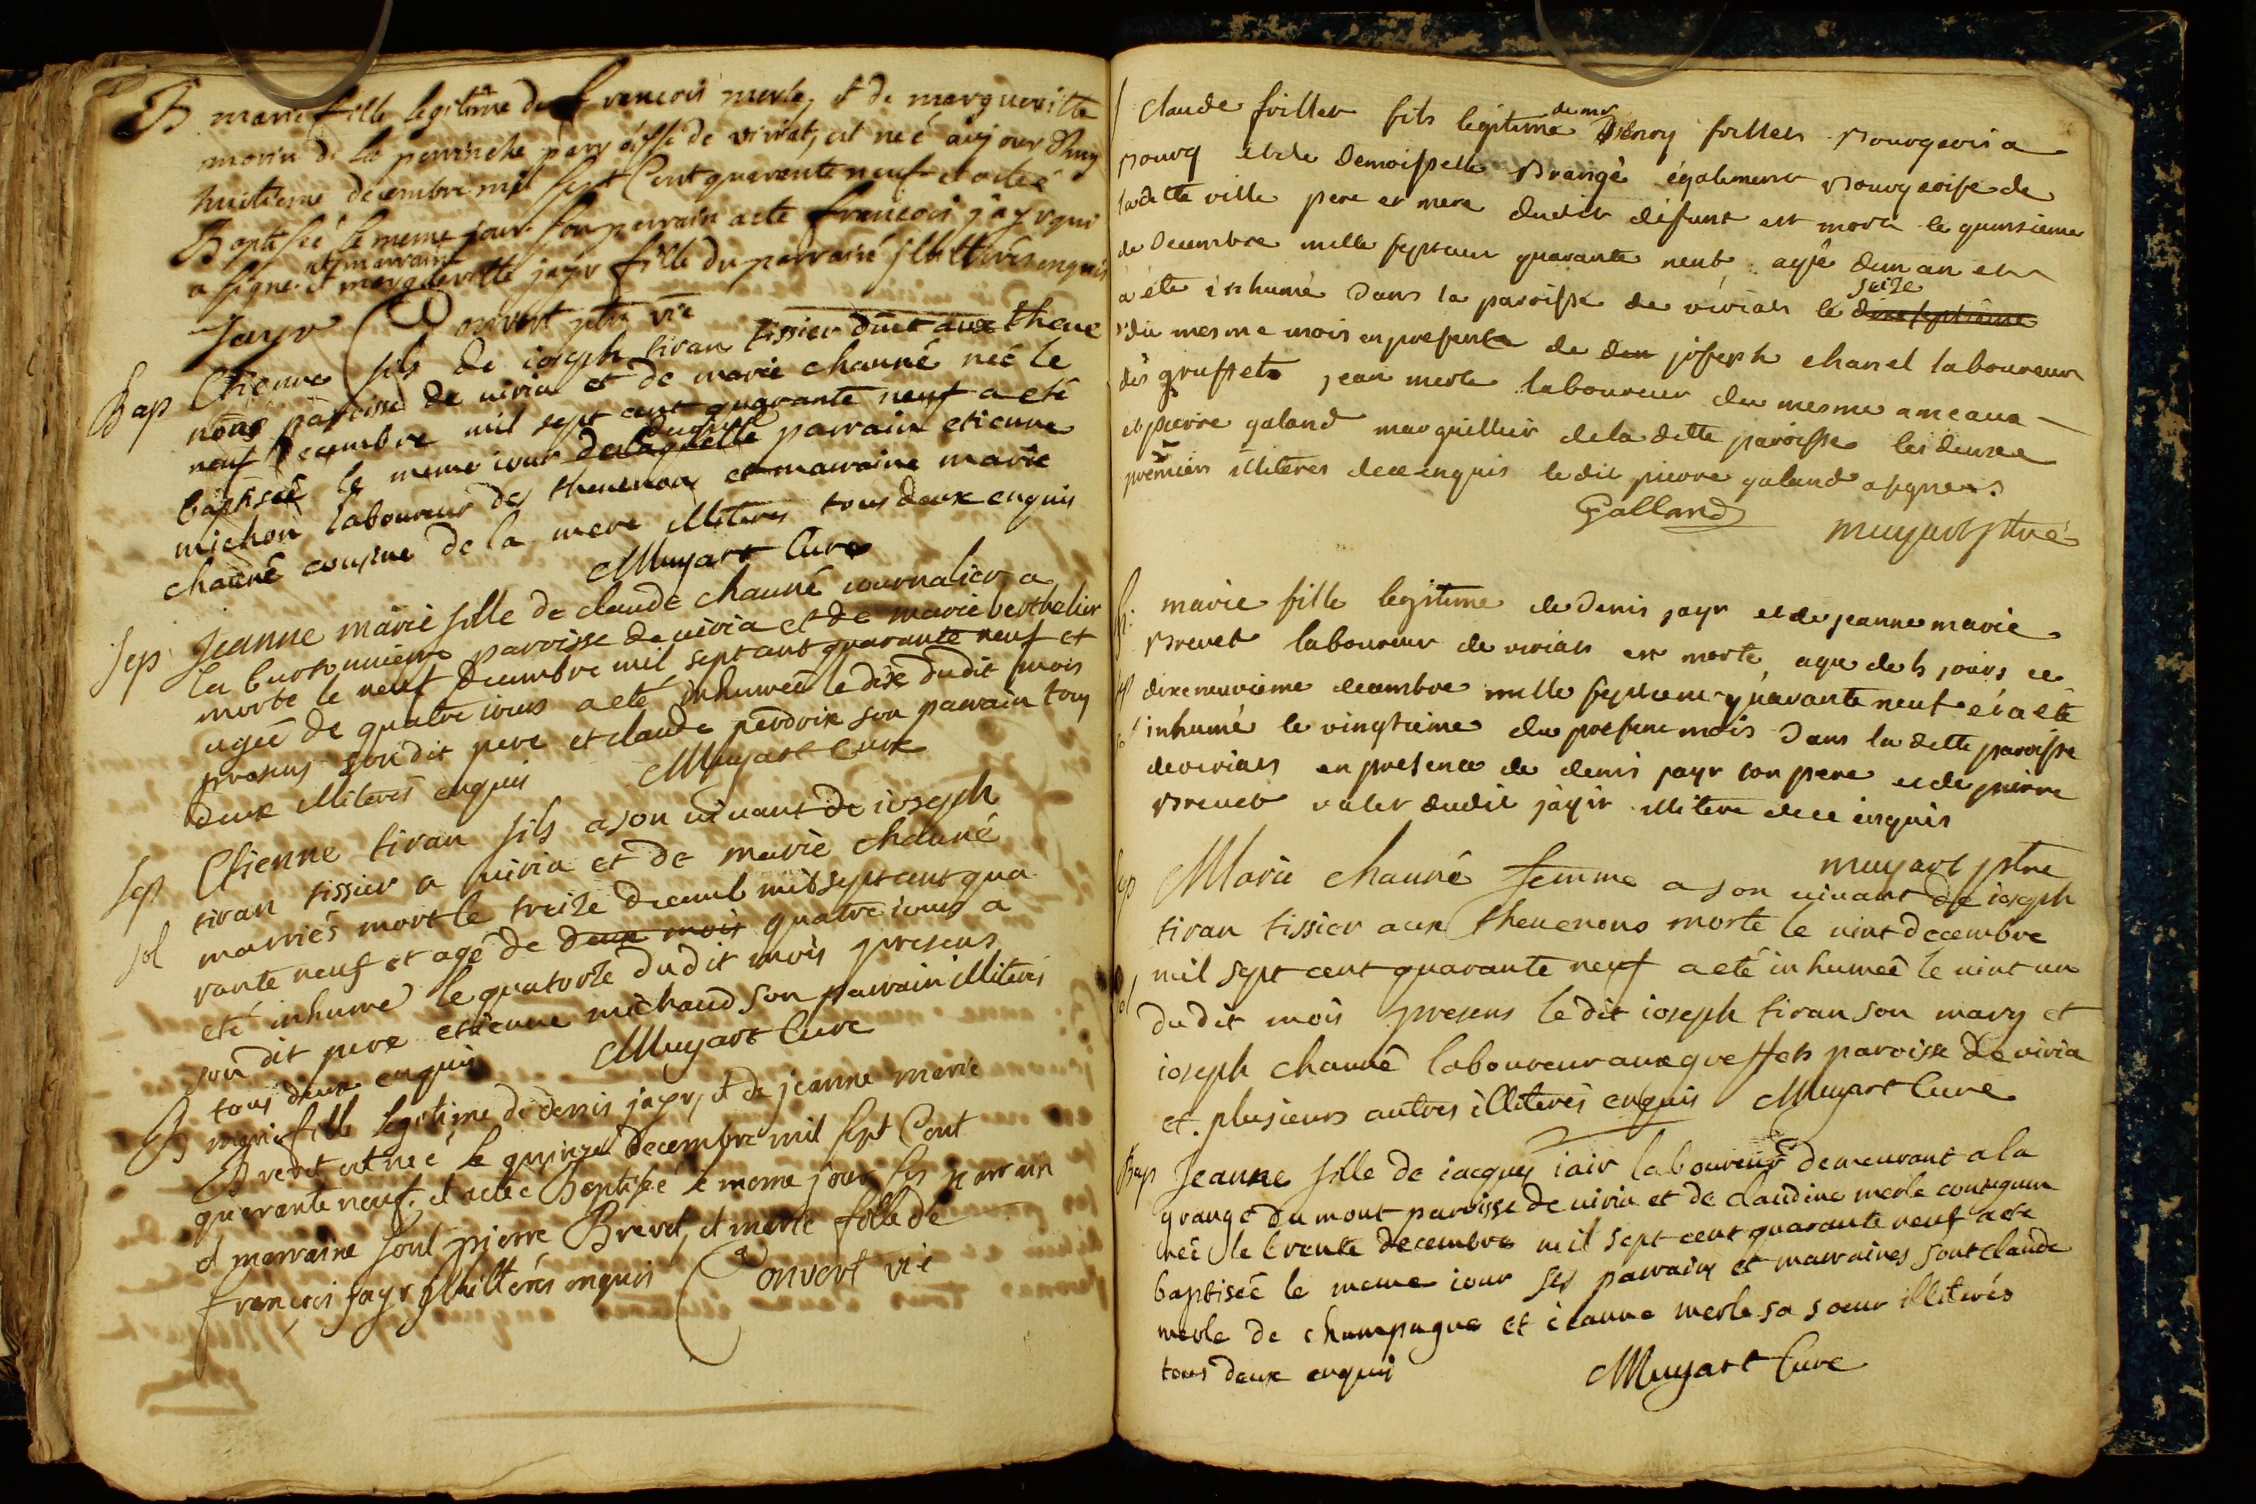 B marie fille legitime de francois merle, et de marguerite
morin de la perrinche parroisse de viriat, est neé aujourdhuy
huitieme decembre mil sept Cent quarante neuf et a eteé
Baptiseé le meme jour son parrain a ete francois jayr qui
a signe et marraine marguerite jayr fille du parrain illitterés enquis
Jayr Convert ptre vic
Bap Etienne fils de ioseph tiran tissier dmt aux theve
nons paroisse de viria et de marie chauné neé le
neuf decembre mil sept cent quarante neuf a eté
baptiseé le meme iour de laquelle duquel parrain etienne
michon laboureur des thevenons et marraine marie
chauné cousine de la mere illiteres tous deux enquis
Muyart Cure
Sep Jeanne marie fille de claude chauné iournalier a
la Curtonniere paroisse de viria et de marie berthelier
morte le neuf decembre mil sept cent quarante neuf et
ageé de quatre iours a eté inhumeé le dix dudit mois
presens son dit pere et claude perdrix son parrain tous
deux illiteres enquis Muyart Cure
Sep Etienne tiran fils a son vivant de ioseph
tiran tissier a viria et de marie chauné
sol mariés mort le treize decemb mil sept cent qua
rante neuf et agé de deux mois quatre iours a
eté inhumé le quatorze dudit mois presens
son dit pere etienne michaud son parrain illiteres
tous deux enquis Muyart Cure
B marie fille legitime de denis jayr, et de jeanne marie
Brevet est neé le quinze decembre mil sept Cent
quarante neuf, et a eteé Baptiseé le meme jour ses parrain
et marraine sont pierre Brevet, et marie fille de
francois jayr illitterés enquis Convert vic
Claude frillet fils legitime de mr Henry frillet Bourgeois a
Bourg et de Demoiselle Brangé également Bourgeoise de
ladette ville pere et mere dudit défunt est mort le quinsieme
de Decembre mille septcent quarante neuf agé dun an et
a été inhumé dans la paroisse de viriat le dixseptieme seize
du mesme mois en presence de joseph chanel laboureur
des gruffets jean merle laboureur du mesme ameaux
et pierre galand marguillier de la dette paroisse les deux
premiers illiteres de ce enquis le dit pierre galand a signer
Galland
muyart ptre
marie fille legitime de Denis jayr et de jeanne marie
Brevet laboureur de viriat est morte, agee de 5 jours ce
dixneuvieme decembre mille septcent quarante neuf et a eté
inhumé le vingtieme du present mois dans la dette paroisse
de viriat en presence de denis jayr son pere et de pierre
Brevet valet dudit jayr illitere de ce enquis
muyart ptre
Sep Marie chauné femme a son vivant de ioseph
tiran tissier aux thevenons morte le vint decembre
mil sept cent quarante neuf a eté inhumeé le vint un
dudit mois presens le dit ioseph tiran son mary et
ioseph chauné laboureur aux greffets paroisse de viria
et plusieurs autres illiterés enquis Muyart Cure
Bap Jeanne fille de iacques iair laboureur demeurant a la
grange du mont paroisse de viria et de claudine merle
neé le trente decembre mil sept cent quarante neuf a ete
baptiseé le meme iour ses parrain et marraines sont claude
merle de champagne et ieanne merle sa soeur illiterés
tous deux enquis Muyart Cure